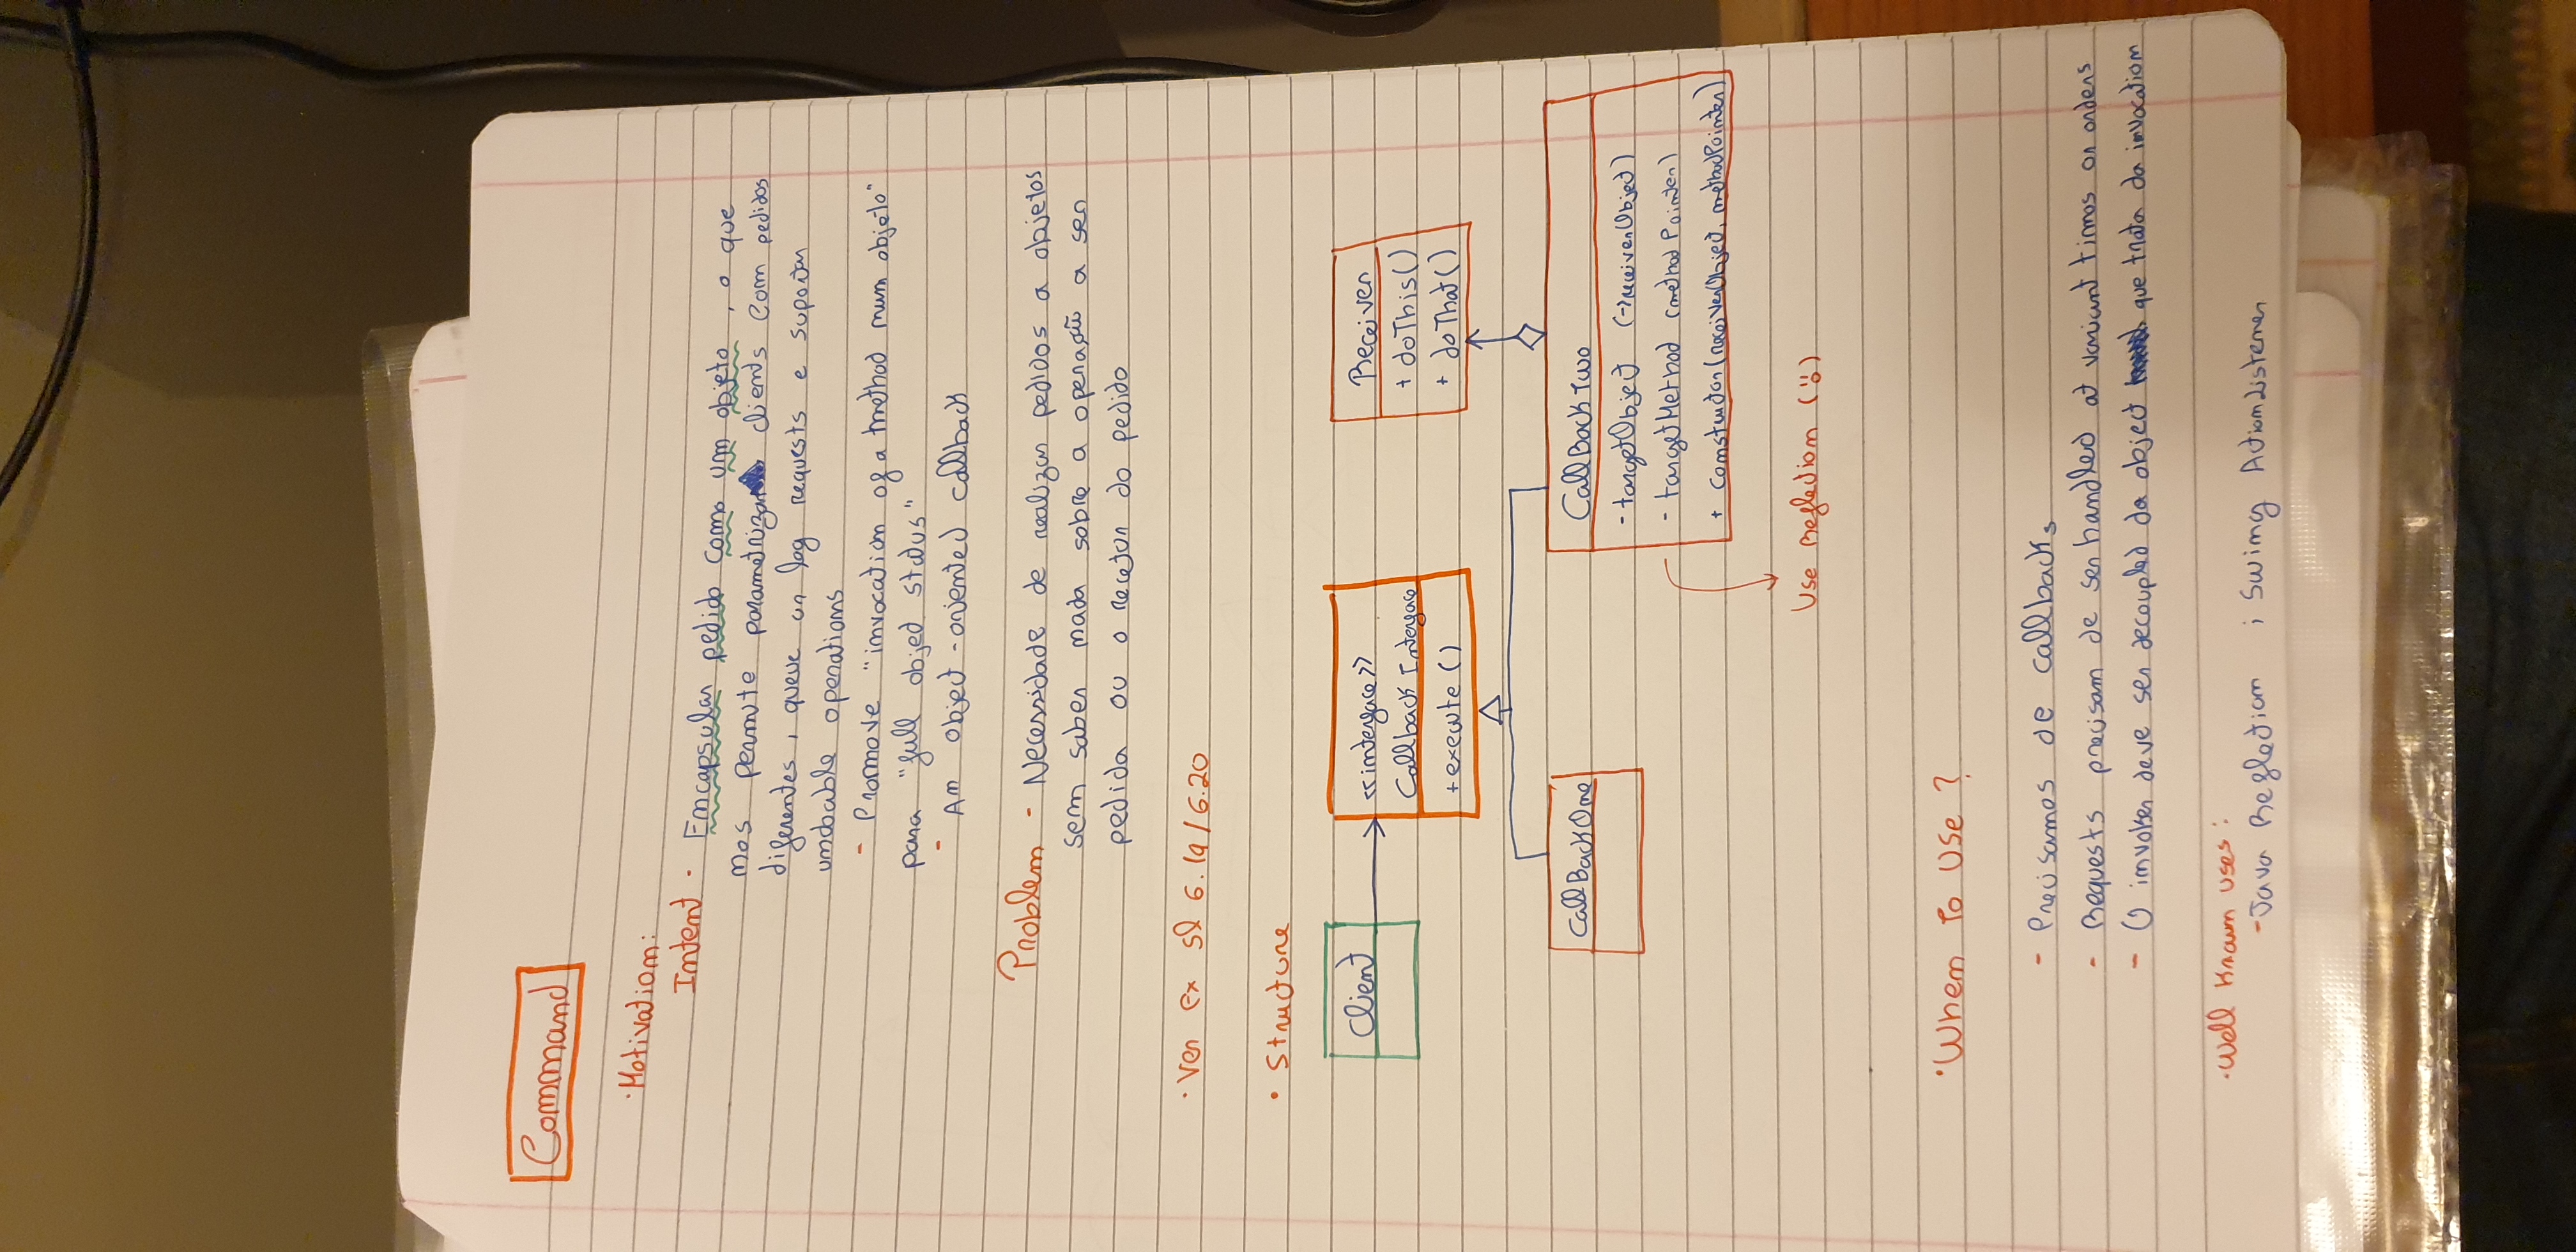 Command
· Motivation:
Intent - Encapsular pedido como um objeto, o que
nos permite parametrizar clients com pedidos
diferentes, queue or log requests e suportar
undoable operations
- Promove "invocation of a method num objeto"
para "full object status"
- An object-oriented callback
Problem - Necessidade de realizar pedidos a objetos
sem saber nada sobre a operação a ser
pedida ou o recetor do pedido
· Ver ex sl 6.19/6.20
· Structure
Client
<<interface>>
Callback Interface
+execute()
Receiver
+ doThis()
+ doThat()
CallBackOne
CallBackTwo
- targetObject (->receiverObject)
- targetMethod (methodPointer)
+ constructor(receiverObject, methodPointer)
Use Reflection
· When to Use?
- Precisamos de callbacks
- Requests precisam de ser handled at variant times or orders
- O invoker deve ser decoupled do object que trata da invocation
· Well Known uses:
- Java Reflection ; Swing ActionListener